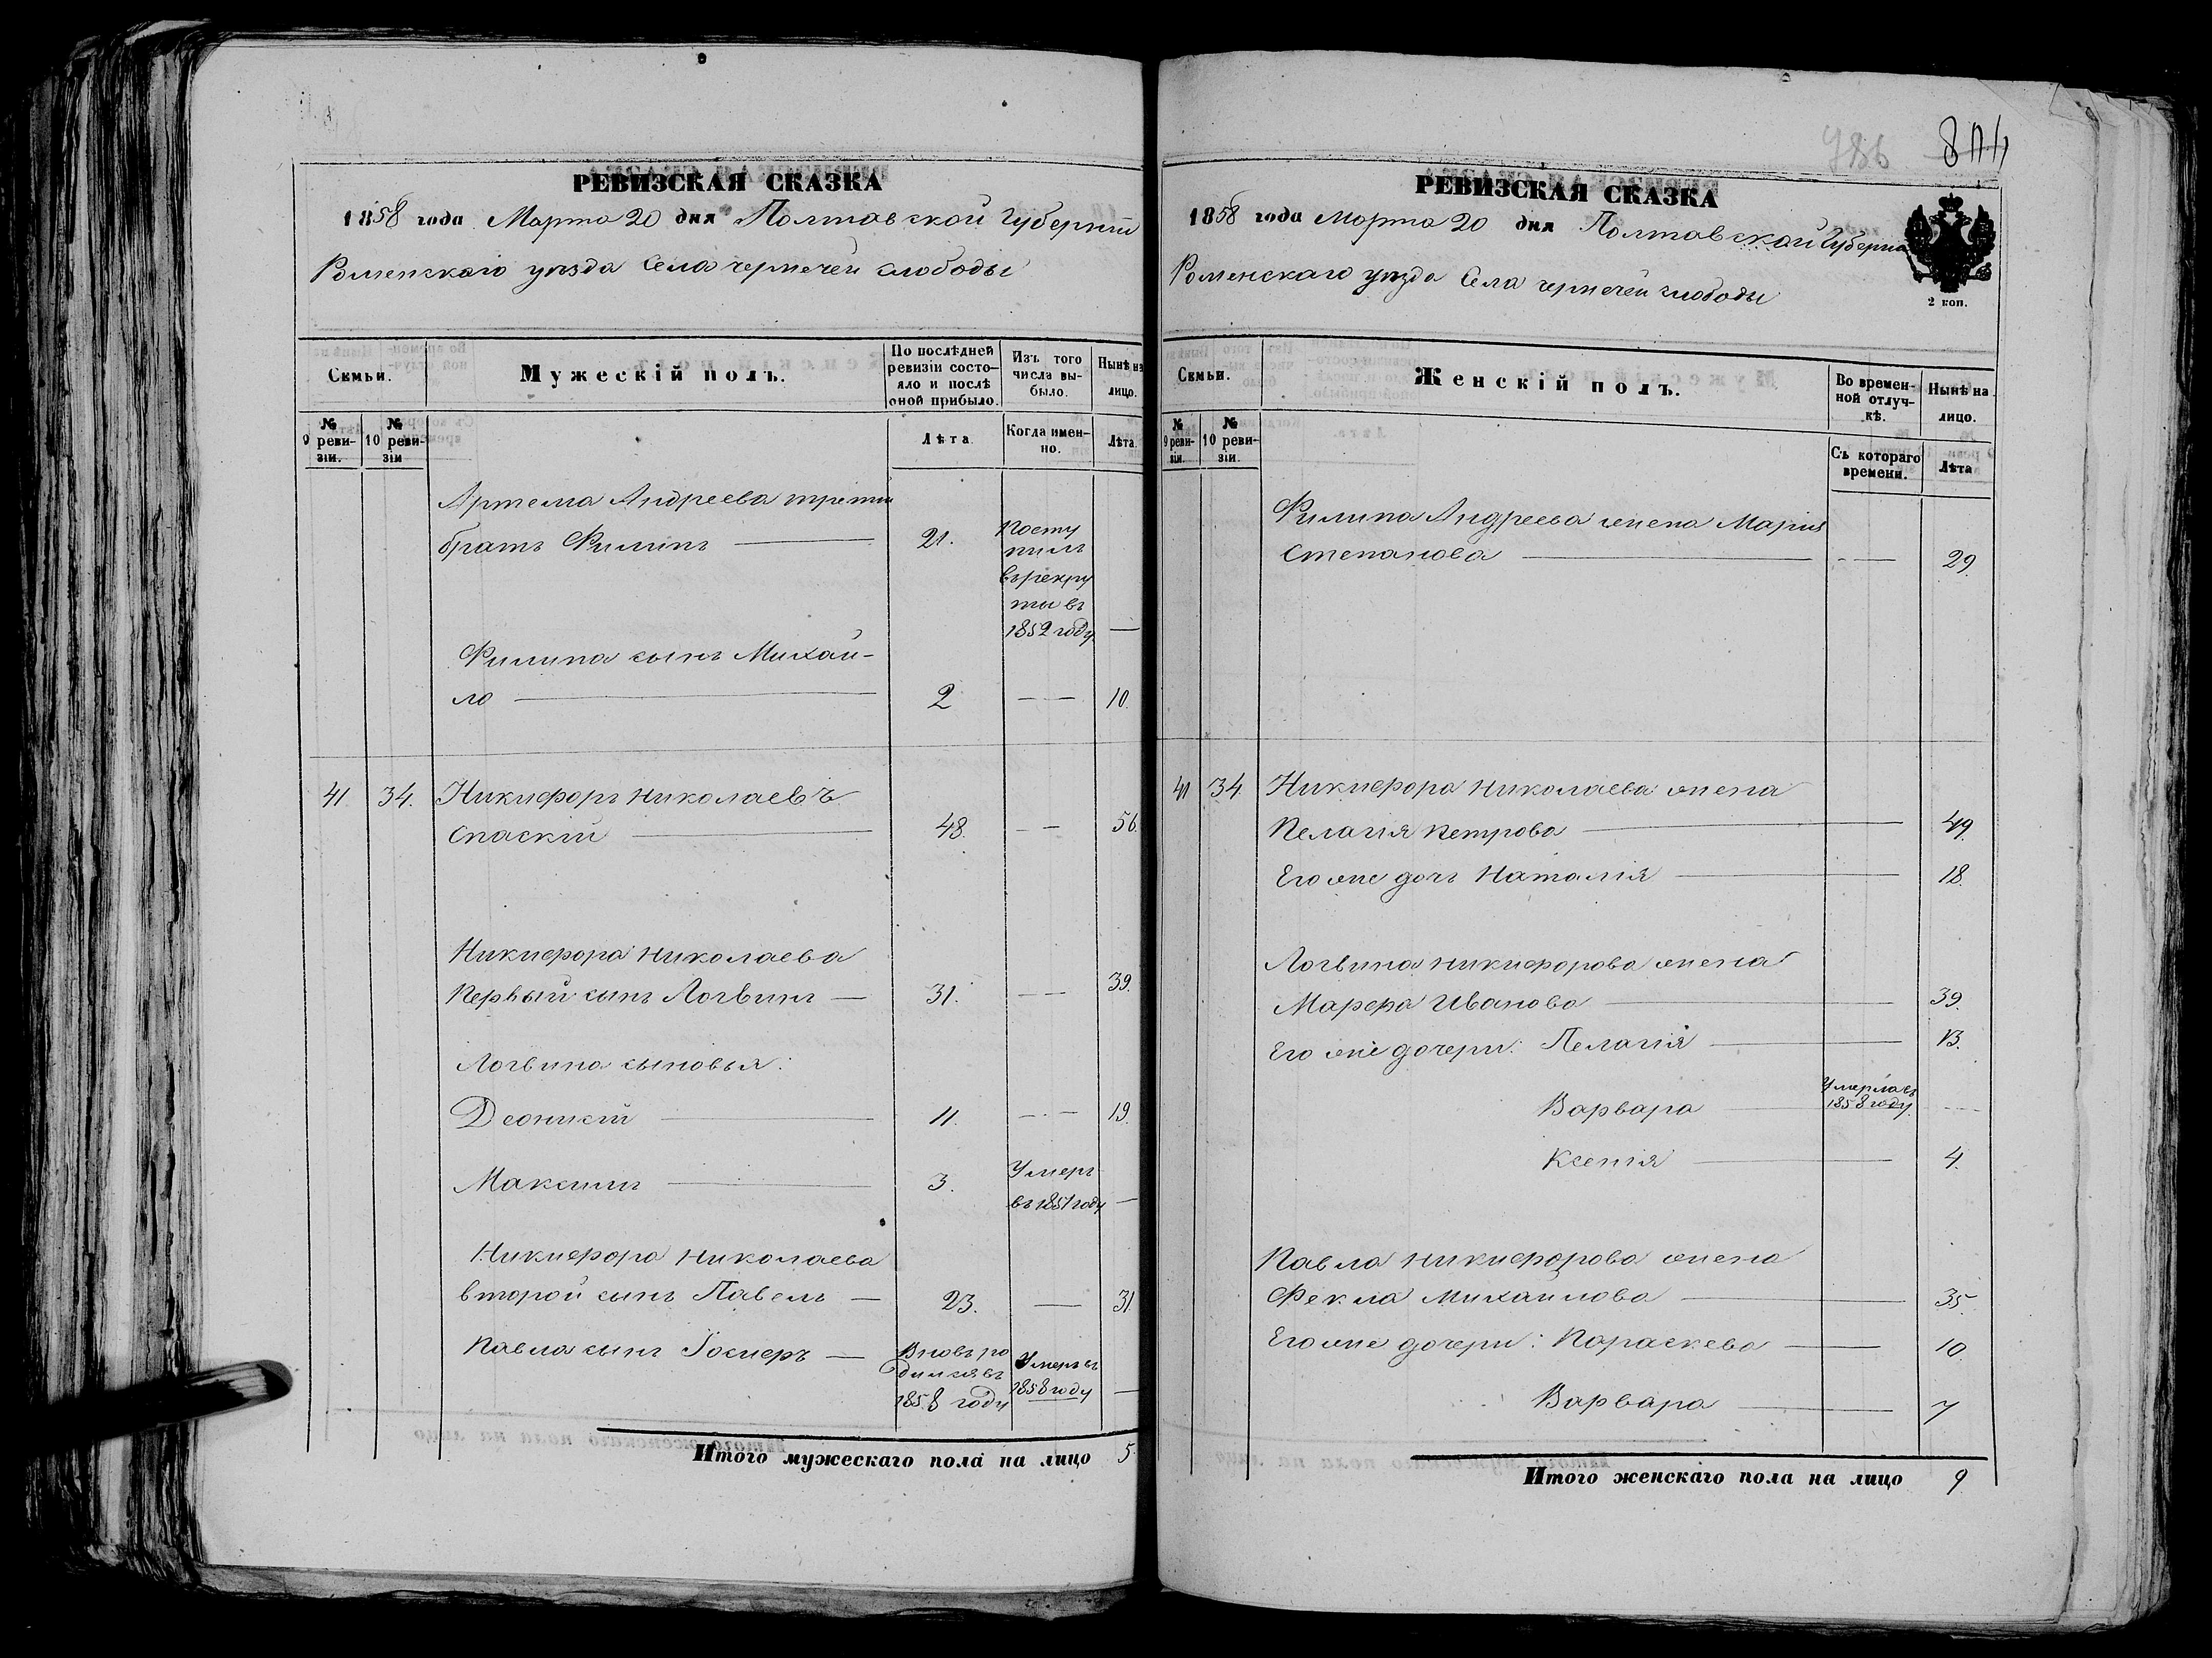 РЕВИЗСКАЯ СКАЗКА
1858 года Марта 20 дня Полтавской Губерніи
Роменскаго уѣзда Села чернечей слободы
Семьи.
Мужескій полъ.
По послѣдней ревизіи состояло и послѣ оной прибыло.
Изъ того числа выбыло.
Нынѣ на лицо.
№ 9 ревизіи.
№ 10 ревизіи
Лѣта
Когда именно.
Лѣта.
Артема Андреева третій
братъ Филипъ — 21.
Посту
пилъ
въ рекру
ты въ
1852 году —
Филипа сынъ Михай-
ло — 2 — — 10.
41 34. Никифоръ Николаевъ
Спаскій — 48. — 56.
Никифора Николаева
Первый сынъ Логвинъ — 31. — — 39.
Логвина сыновья:
Деонисій — 11. — — 19.
Максимъ — 3.
Умеръ
въ 1851 году —
Никифора Николаева
второй сынъ Павелъ — 23. — 31.
Павла сынъ Іосиеръ —
Вновь ро
дился въ
1858 году
Умеръ въ
1858 году —
Итого мужескаго пола на лицо 5.
986 804
РЕВИЗСКАЯ СКАЗКА
1858 года Марта 20 дня Полтавской Губерніи
Роменскаго уѣзда Села чернечей слободы
2 коп.
Семьи.
Женскій полъ.
Во временной отлучкѣ.
Нынѣ на лицо.
№ 9 ревизіи.
№ 10 ревизіи.
Съ котораго времени.
Лѣта
Филипа Андреева жена Марія
Степанова — — — 29.
41 34. Никифора Николаева жена
Пелагія Петрова — 49.
Его же дочь Наталія — 18.
Логвина Никифорова жена
Марфа Иванова — 39.
Его же дочери: Пелагія — 13.
Варвара — Умерла въ
1858 году. —
Ксенія — 4.
Павла Никифорова жена
Фекла Михайлова — 35.
Его же дочери: Параскева — 10.
Варвара — 7
Итого женскаго пола на лицо 9